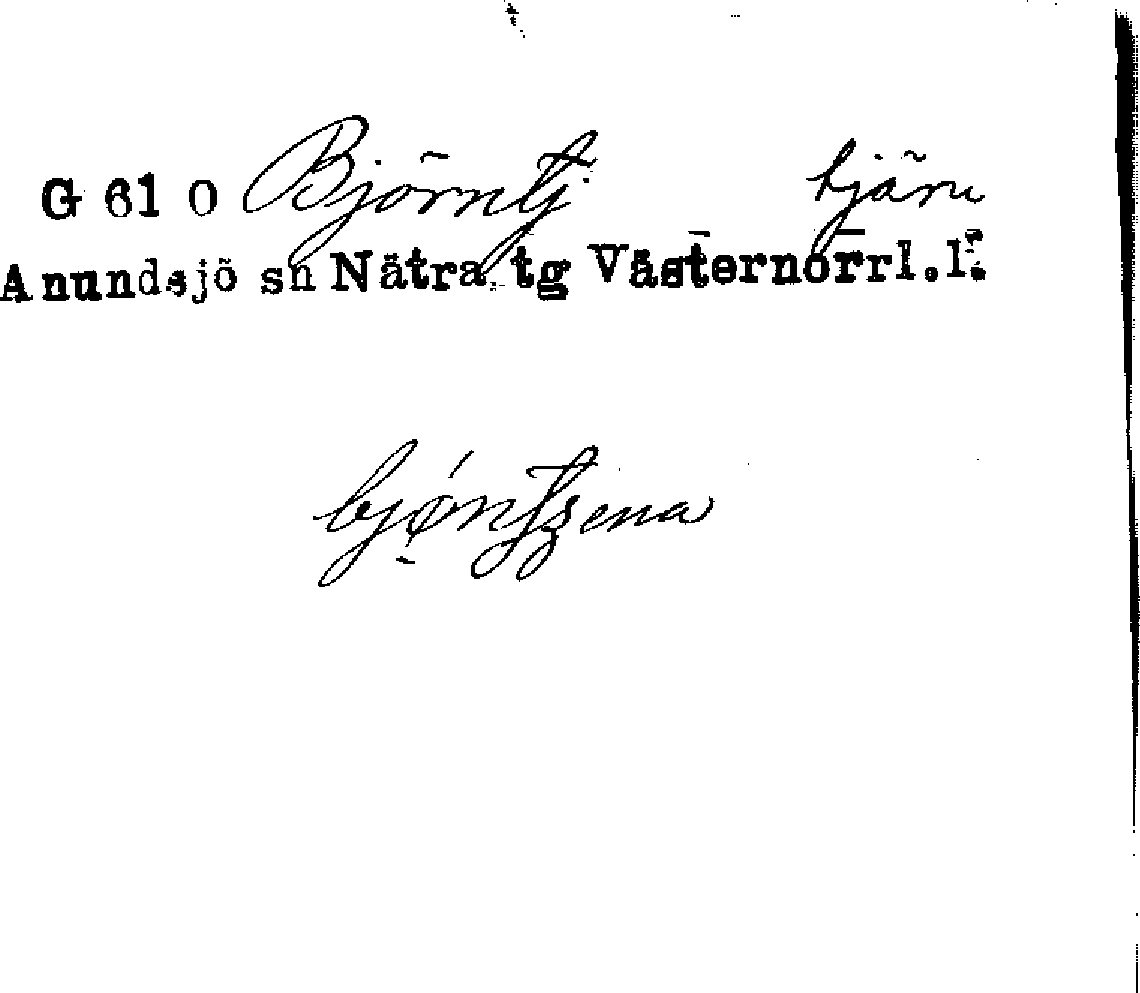 G 61 O Björntj tjärn
Anundsjö sn Nätra tg Västernorrl.l.